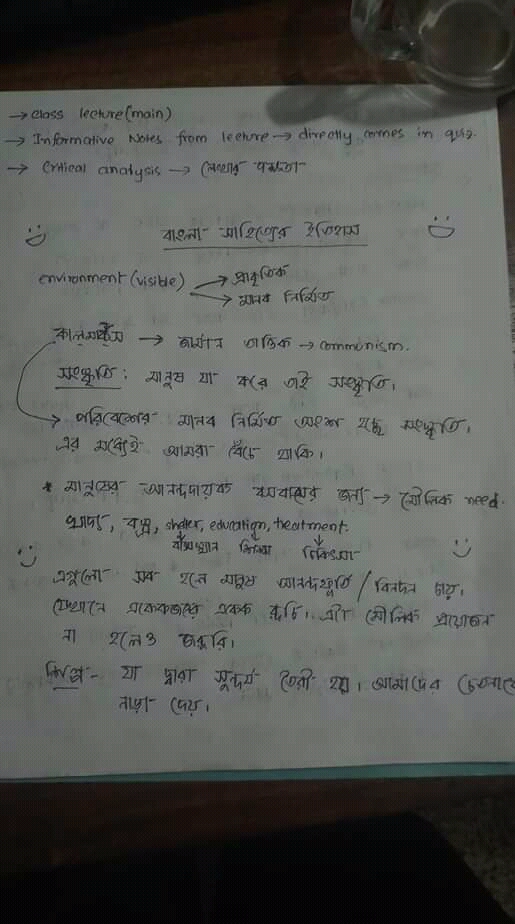 → class lecture(main)
→ Informative Notes from lecture → directly comes in quiz.
→ Critical analysis → লেখার দক্ষতা
বাংলা সাহিত্যের ইতিহাস
environment (visible) → প্রাকৃতিক
→ মানব নির্মিত
কাল মার্কস → জার্মান তাত্ত্বিক → communism.
সংস্কৃতি : মানুষ যা করে তাই সংস্কৃতি।
→ পরিবেশের মানব নির্মিত অংশ হচ্ছে সংস্কৃতি।
এর মধ্যেই আমরা বেঁচে থাকি।
* মানুষের আনন্দদায়ক বসবাসের জন্য → মৌলিক need.
খাদ্য, বস্ত্র, shelter, education, treatment.
বাসস্থান শিক্ষা চিকিৎসা
এগুলো সব হলে মানুষ আনন্দফুর্তি / বিনদন চায়।
যেখানে একেকজনের একক রুচি। এটা মৌলিক প্রয়োজন
না হলেও জরুরি।
শিল্প - যা দ্বারা সুন্দর্য তৈরী হয়। আমাদের চেতনাকে
নাড়া দেয়।